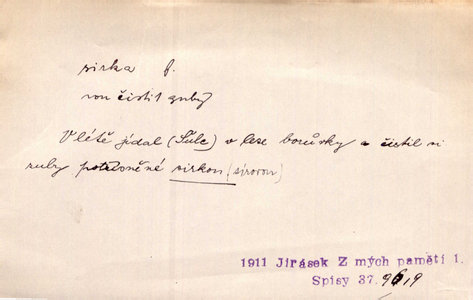 sirka f.
sou čistit zuby
V létě jídal (Šulc) v lese borůvky a čistil si
zuby potrměné sirkou (sirovou)
1911 Jirásek Z mých pamětí 1.
Spisy 37. 96,9